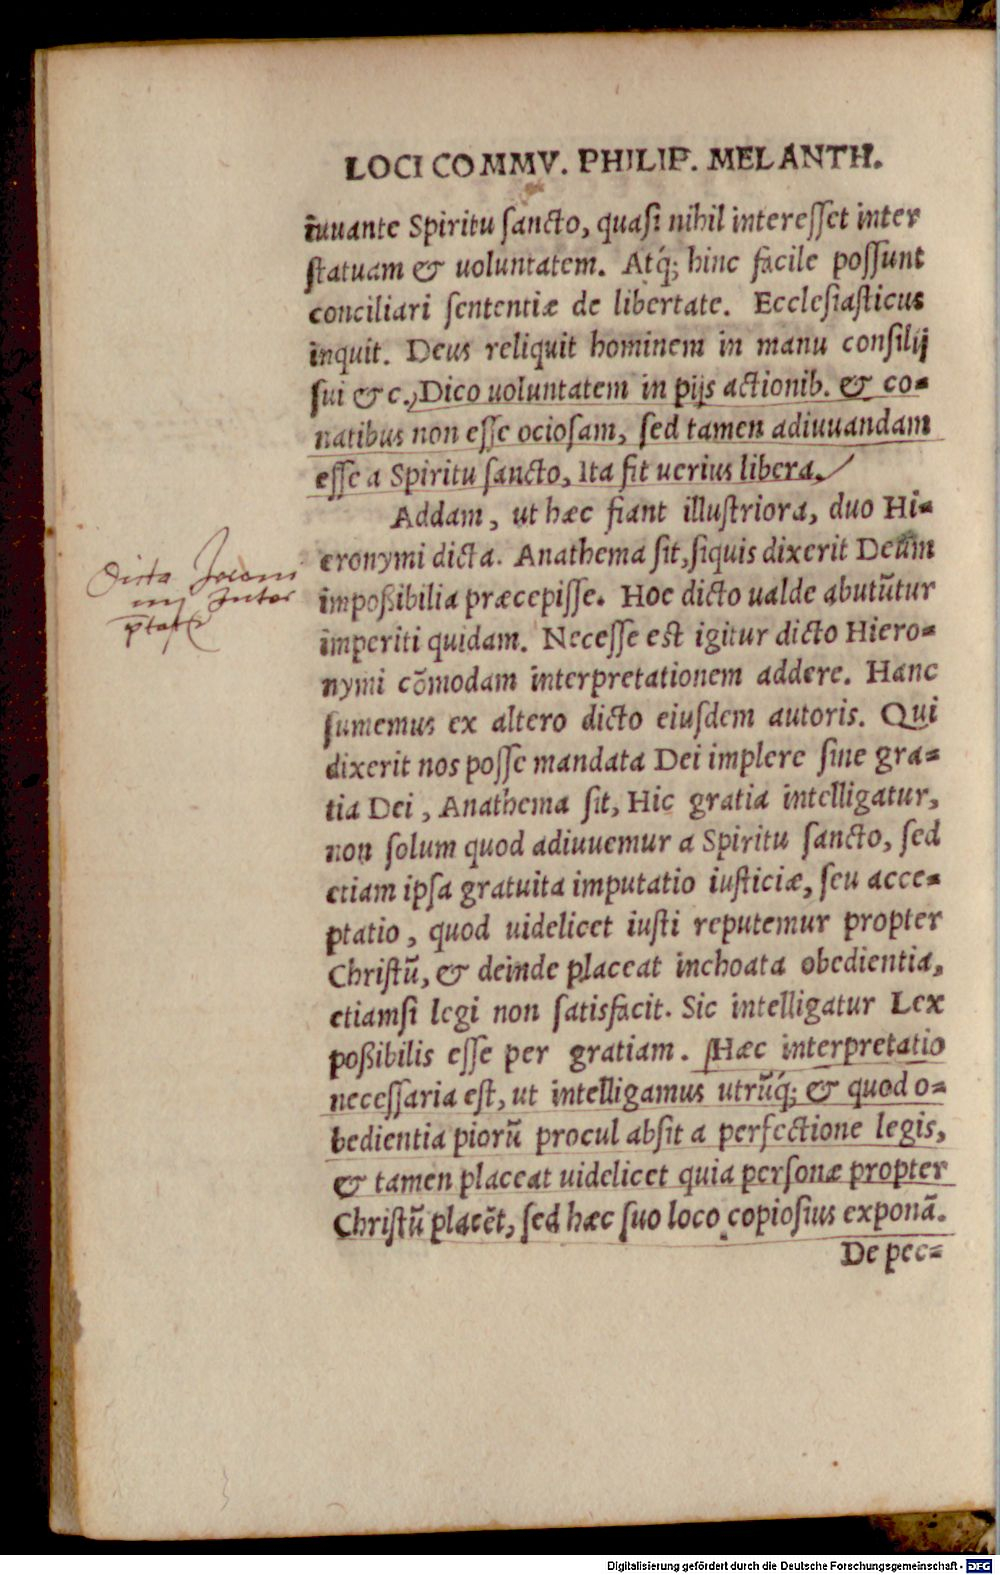 LOCI COMMV. PHILIP. MELANTH.
iuuante Spiritu ſancto, quaſi nihil intereſſet inter
ſtatuam & uoluntatem. Atq́; hinc facile poſſunt
conciliari ſententiæ de libertate. Eccleſiaſticus
inquit. Deus reliquit hominem in manu conſilij
ſui & c., Dico uoluntatem in pijs actionib. & co-
natibus non eſſe ocioſam, ſed tamen adiuuandam
eſſe a Spiritu ſancto, Ita fit uerius libera.
Addam, ut hæc fiant illuſtriora, duo Hi-
eronymi dicta. Anathema ſit, ſiquis dixerit Deum
impoßibilia præcepiſſe. Hoc dicto ualde abutūtur
imperiti quidam. Neceſſe eſt igitur dicto Hiero-
nymi cōmodam interpretationem addere. Hanc
ſumemus ex altero dicto eiuſdem autoris. Qui
dixerit nos poſſe mandata Dei implere ſine gra-
tia Dei, Anathema ſit, Hic gratia intelligatur,
non ſolum quod adiuuemur a Spiritu ſancto, ſed
etiam ipſa gratuita imputatio iuſticiæ, ſeu acce-
ptatio, quod uidelicet iuſti reputemur propter
Chriſtū, & deinde placeat inchoata obedientia,
etiamſi legi non ſatisfacit. Sic intelligatur Lex
poßibilis eſſe per gratiam. Hæc interpretatio
neceſſaria eſt, ut intelligamus utrūq́; & quod o-
bedientia piorū procul abſit a perfectione legis,
& tamen placeat uidelicet quia perſonæ propter
Chriſtū placēt, ſed hæc ſuo loco copioſius exponā.
De pec-
Dicta
Digitalisierung gefördert durch die Deutsche Forschungsgemeinschaft - DFG